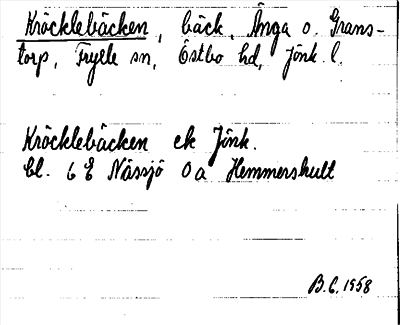 Kröcklebäcken, bäck, Ånga o. Grans-
torp, Frylle sn, Östbo hd, Jönk. l.
Kröcklebäcken ek Jönk.
bl. 6 E Nässjö 0a Hemmershult
B.C. 1958